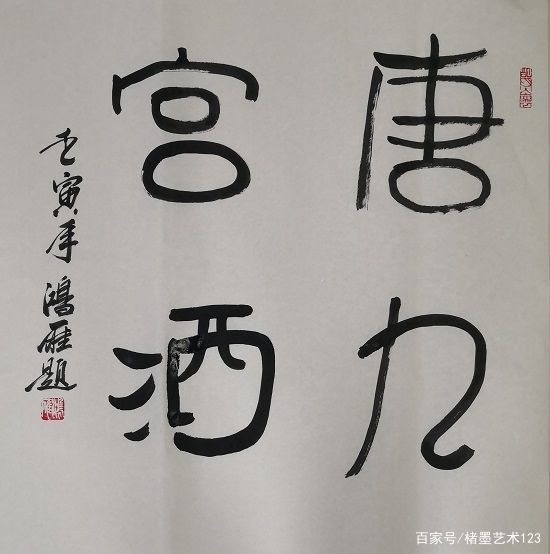 唐九
宫酒
壬寅年鸿雁题
百家号/楮墨艺术123